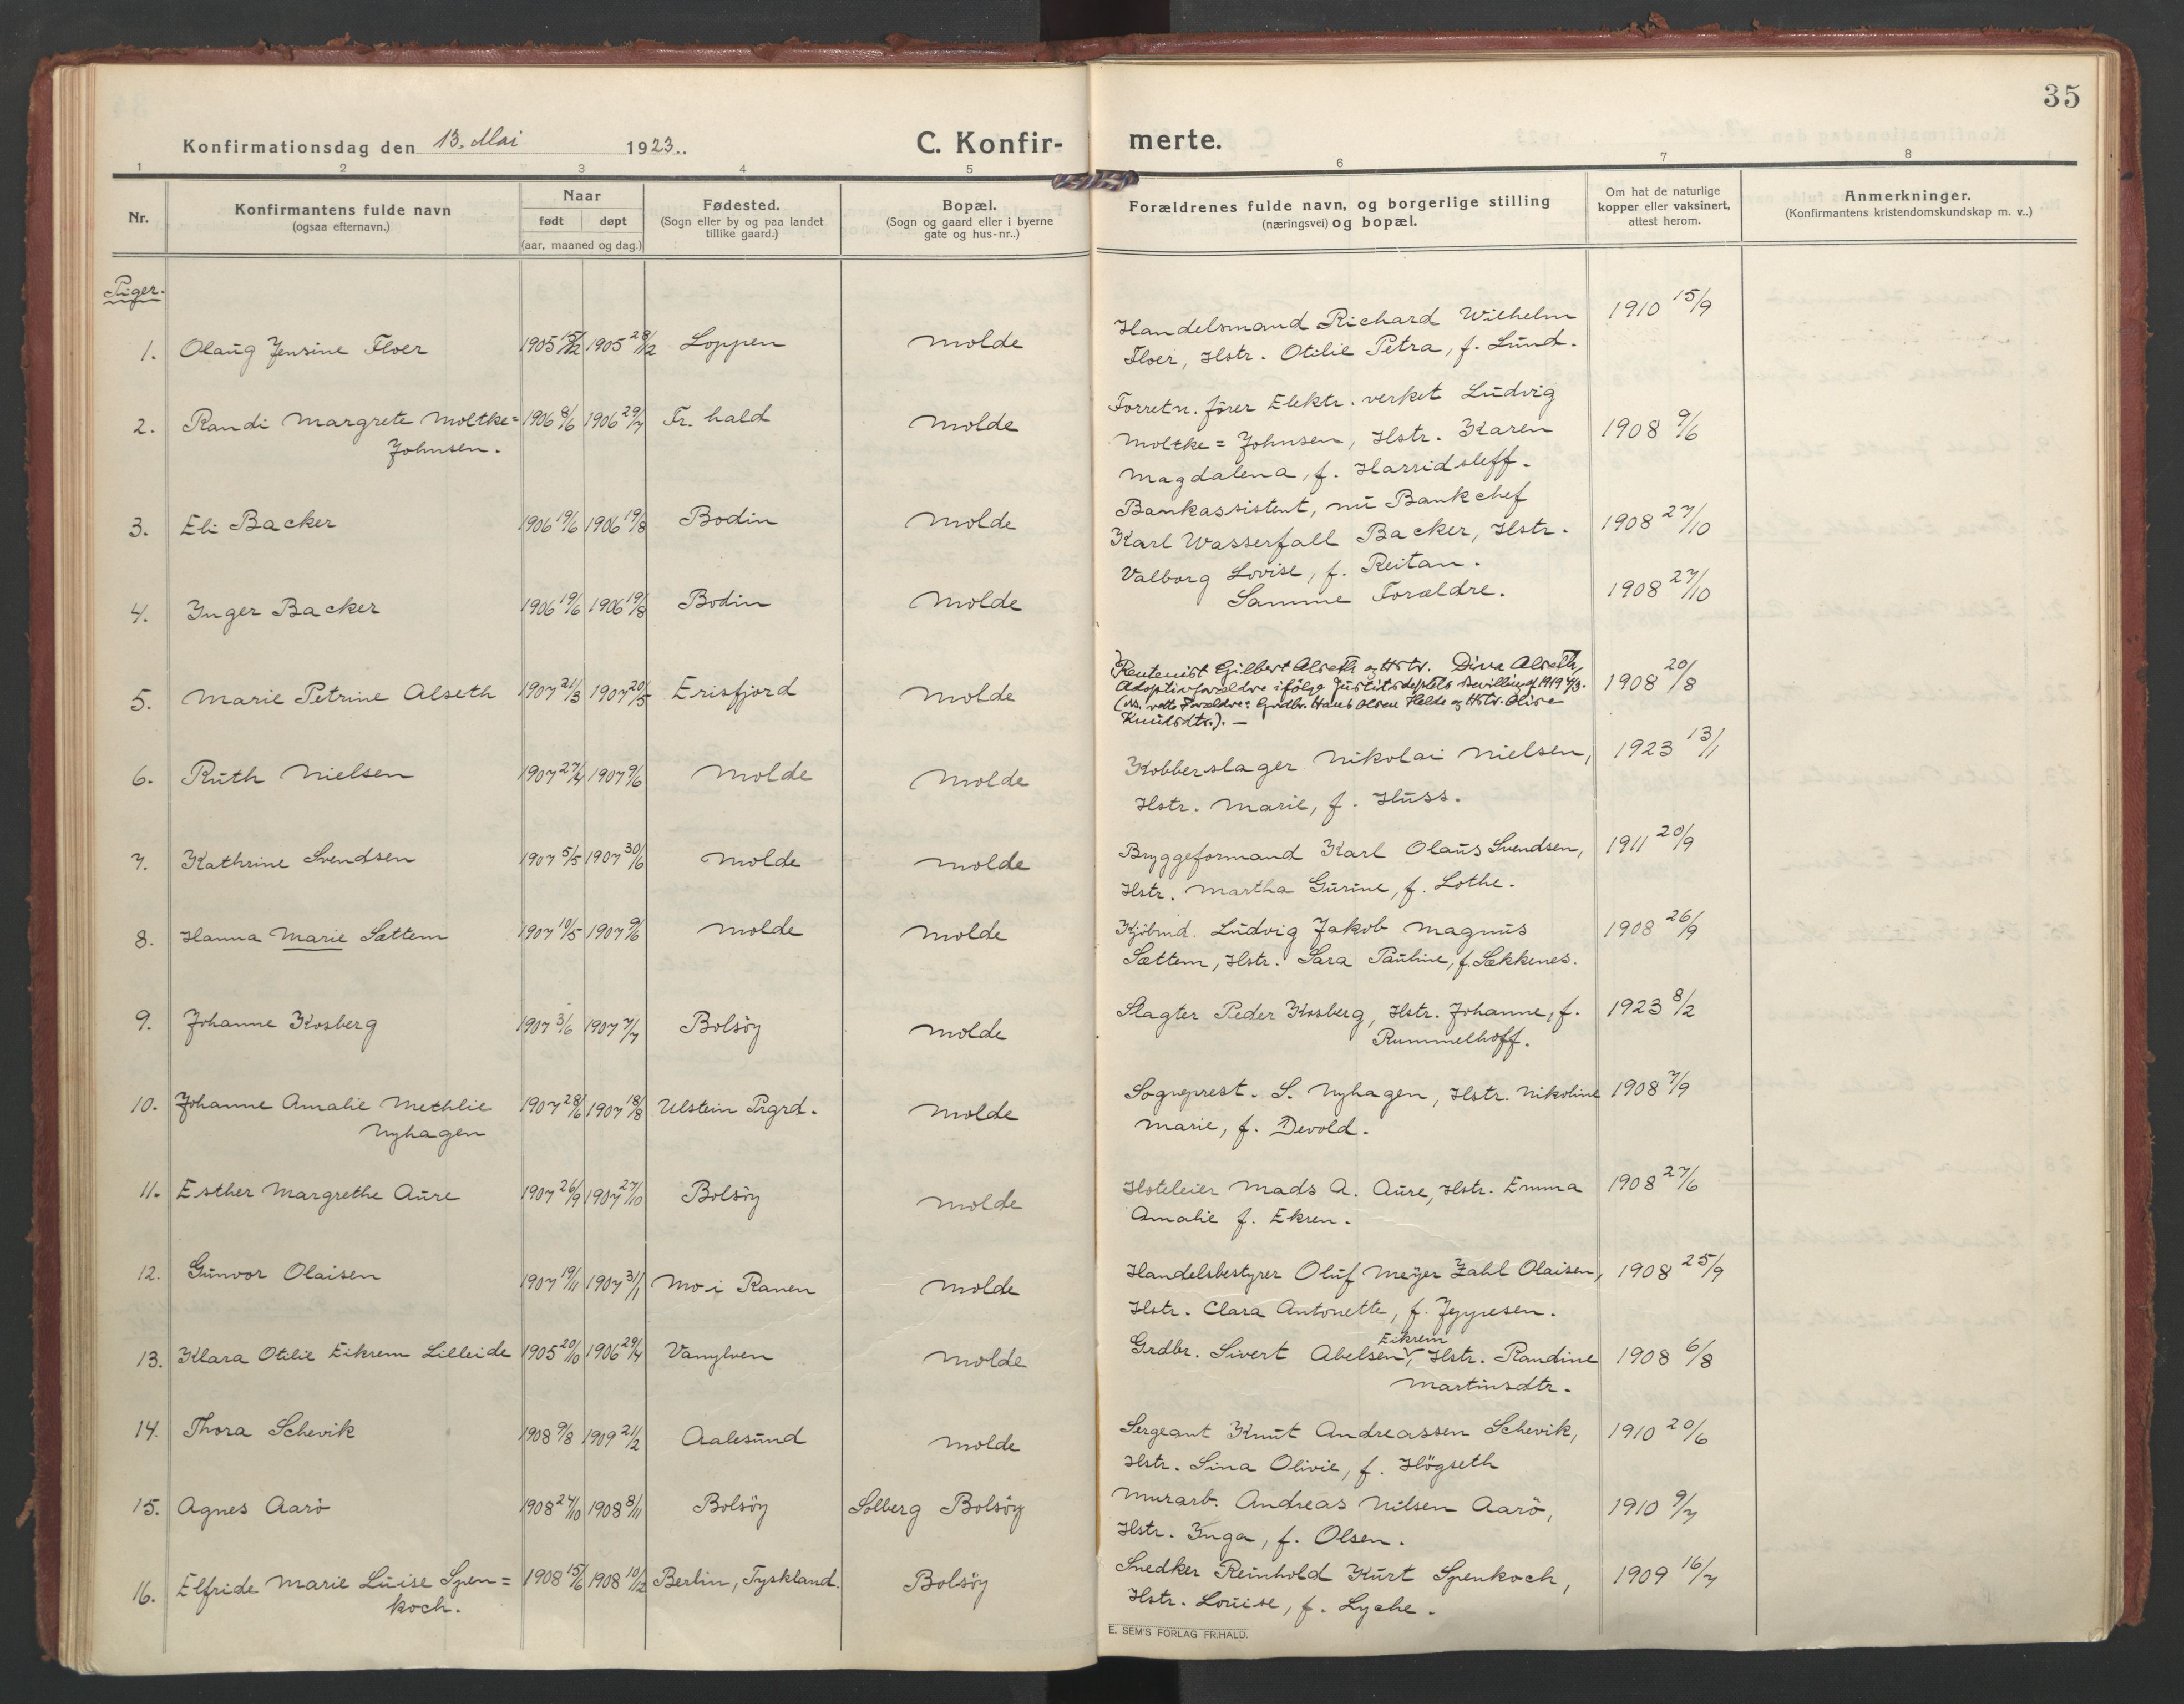 35
Konfirmationsdag den 13. Mai 1923..
C. Konfir- merte.
1 2 3 4 5 6 7 8
Nr.
Konfirmantens fulde navn
(ogsaa efternavn.)
Naar
født døpt
(aar, maaned og dag.)
Fødested.
(Sogn eller by og paa landet
tillike gaard.)
Bopæl.
(Sogn og gaard eller i byerne
gate og hus-nr..)
Forældrenes fulde navn, og borgerlige stilling
(næringsvei) og bopæl.
Om hat de naturlige
kopper eller vaksinert,
attest herom.
Anmerkninger.
(Konfirmantens kristendomskundskap m. v..)
Piger.
1. Olaug Jensine Floer 1905 15/12 1905 28/12 Loppen Molde Handelsmand Richard Wilhelm 1910 15/9
Floer, Hstr. Otilie Petra, f. Lund.
2. Randi Margrete Moltke= 1906 8/6 1906 29/7 Fr. hald Molde Forretn. fører Elektr. verket Ludvig
Johnsen. Moltke=Johnsen, Hstr. Karen 1908 9/6
Magdalena, f. Harridsleff.
3. Eli Backer 1906 19/6 1906 19/8 Bodin Molde Bankassistent, nu Bankchef
Karl Wasserfall Backer, Hstr. 1908 27/10
Valborg Lovise, f. Reitan.
4. Inger Backer 1906 19/6 1906 19/8 Bodin Molde Samme Forældre. 1908 27/10
5. Marie Petrine Alseth 1907 21/3 1907 20/5 Erisfjord Molde Rentenist Gilbert Alseth og Hstr. Dina Alseth, 1908 20/8
Adoptivforældre ifölge Justitsdeptets Bevilling 1919
(rette Forældre: Grdbr. Hans Olsen Helde og Hstr. Olise
Knudsdtr.). —
6. Ruth Nielsen 1907 27/4 1907 9/6 Molde Molde Kobberslager Nikolai Nielsen, 1923 13/1
Hstr. Marie, f. Huss.
7. Kathrine Svendsen 1907 5/5 1907 30/6 Molde Molde Bryggeformand Karl Olaus Svendsen, 1911 20/9
Hstr. Martha Gurine, f. Lothe.
8. Hanna Marie Sættem 1907 10/5 1907 9/6 Molde Molde Kjöbmd. Ludvig Jakob Magnus 1908 26/9
Sættem, Hstr. Sara Pauline, f. Sækkenes.
9. Johanne Kosberg 1907 3/6 1907 7/7 Bolsöy Molde Slagter Peder Kosberg, Hstr. Johanne, f. 1923 8/2
Rummelhoff.
10. Johanne Amalie Methlie 1907 28/6 1907 18/8 Ulstein Prgrd. Molde Sogneprest. S. Nyhagen, Hstr. Nikoline 1908 7/9
Nyhagen Marie, f. Devold.
11. Esther Margrethe Aure 1907 26/9 1907 27/10 Bolsöy Molde Hoteleier Mads A. Aure, Hstr. Emma 1908 27/6
Amalie f. Ekren.
12. Gunvor Olaisen 1907 19/11 1907 31/1 Mo i Ranen Molde Handelsbestyrer Oluf Meyer Zahl Olaisen, 1908 25/9
Hstr. Clara Antonette, f. Jeppesen.
13. Klara Otilie Eikrem Lilleide 1905 20/10 1906 29/4 Vanylven Molde Grdbr. Sivert Abelsen Eikrem, Hstr. Randine 1908 6/8
Martinsdtr.
14. Thora Schevik 1908 9/8 1909 21/2 Aalesund Molde Sergeant Knut Andreassen Schevik, 1910 20/6
Hstr. Sina Olivie, f. Högseth
15. Agnes Aarö 1908 24/10 1908 8/11 Bolsöy Solberg Bolsöy Murarb. Andreas Nilsen Aarö, 1910 9/7
Hstr. Inga, f. Olsen.
16. Elfride Marie Luise Spen= 1908 15/6 1908 10/12 Berlin, Tyskland. Bolsöy Snedker Reinhold Kurt Spenkoch, 1909 16/7
koch. Hstr. Louise, f. Lyche.
E. SEM'S FORLAG FR.HALD.